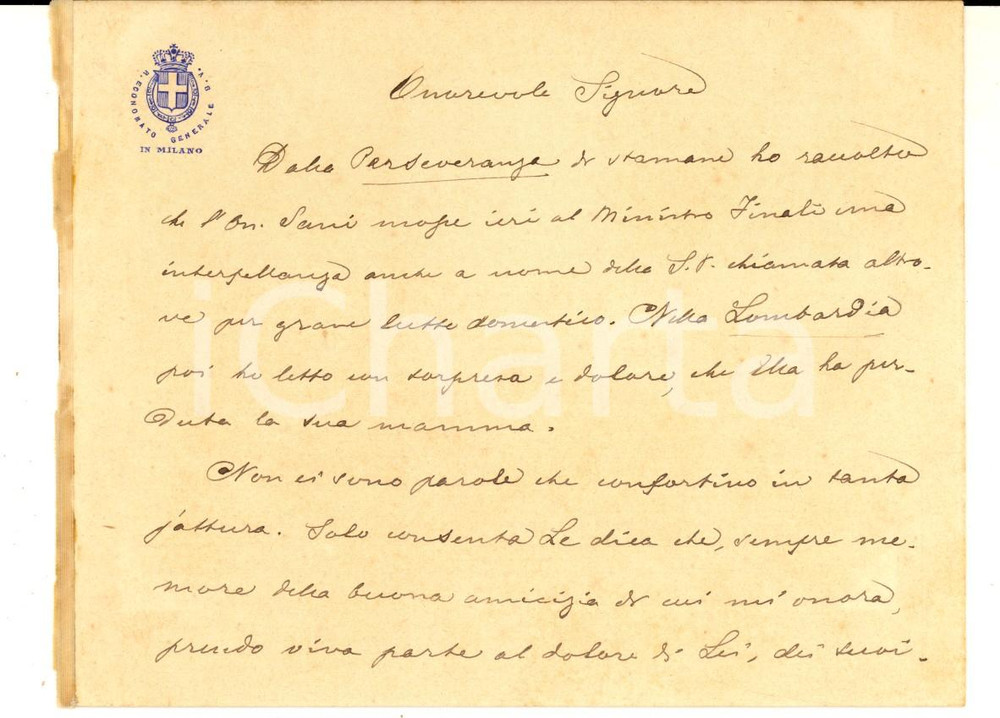 R. ECONOMATO GENERALE B. V.
IN MILANO
Onorevole Signore
Dalla Perseveranza di stamane ho raccolto
che l'On. Sani mosse ieri al Ministro Finali una
interpellanza anche a nome della S. V. chiamata altro-
ve per grave lutto domestico. Nella Lombardia
poi ho letto con sorpresa e dolore, che Ella ha per-
duta la sua mamma.
Non ci sono parole che confortino in tanta
jattura. Solo consenta Le dica che, sempre me-
more della buona amicizia di cui mi onora,
prendo viva parte al dolore di Lei, dei suoi.
iCharta